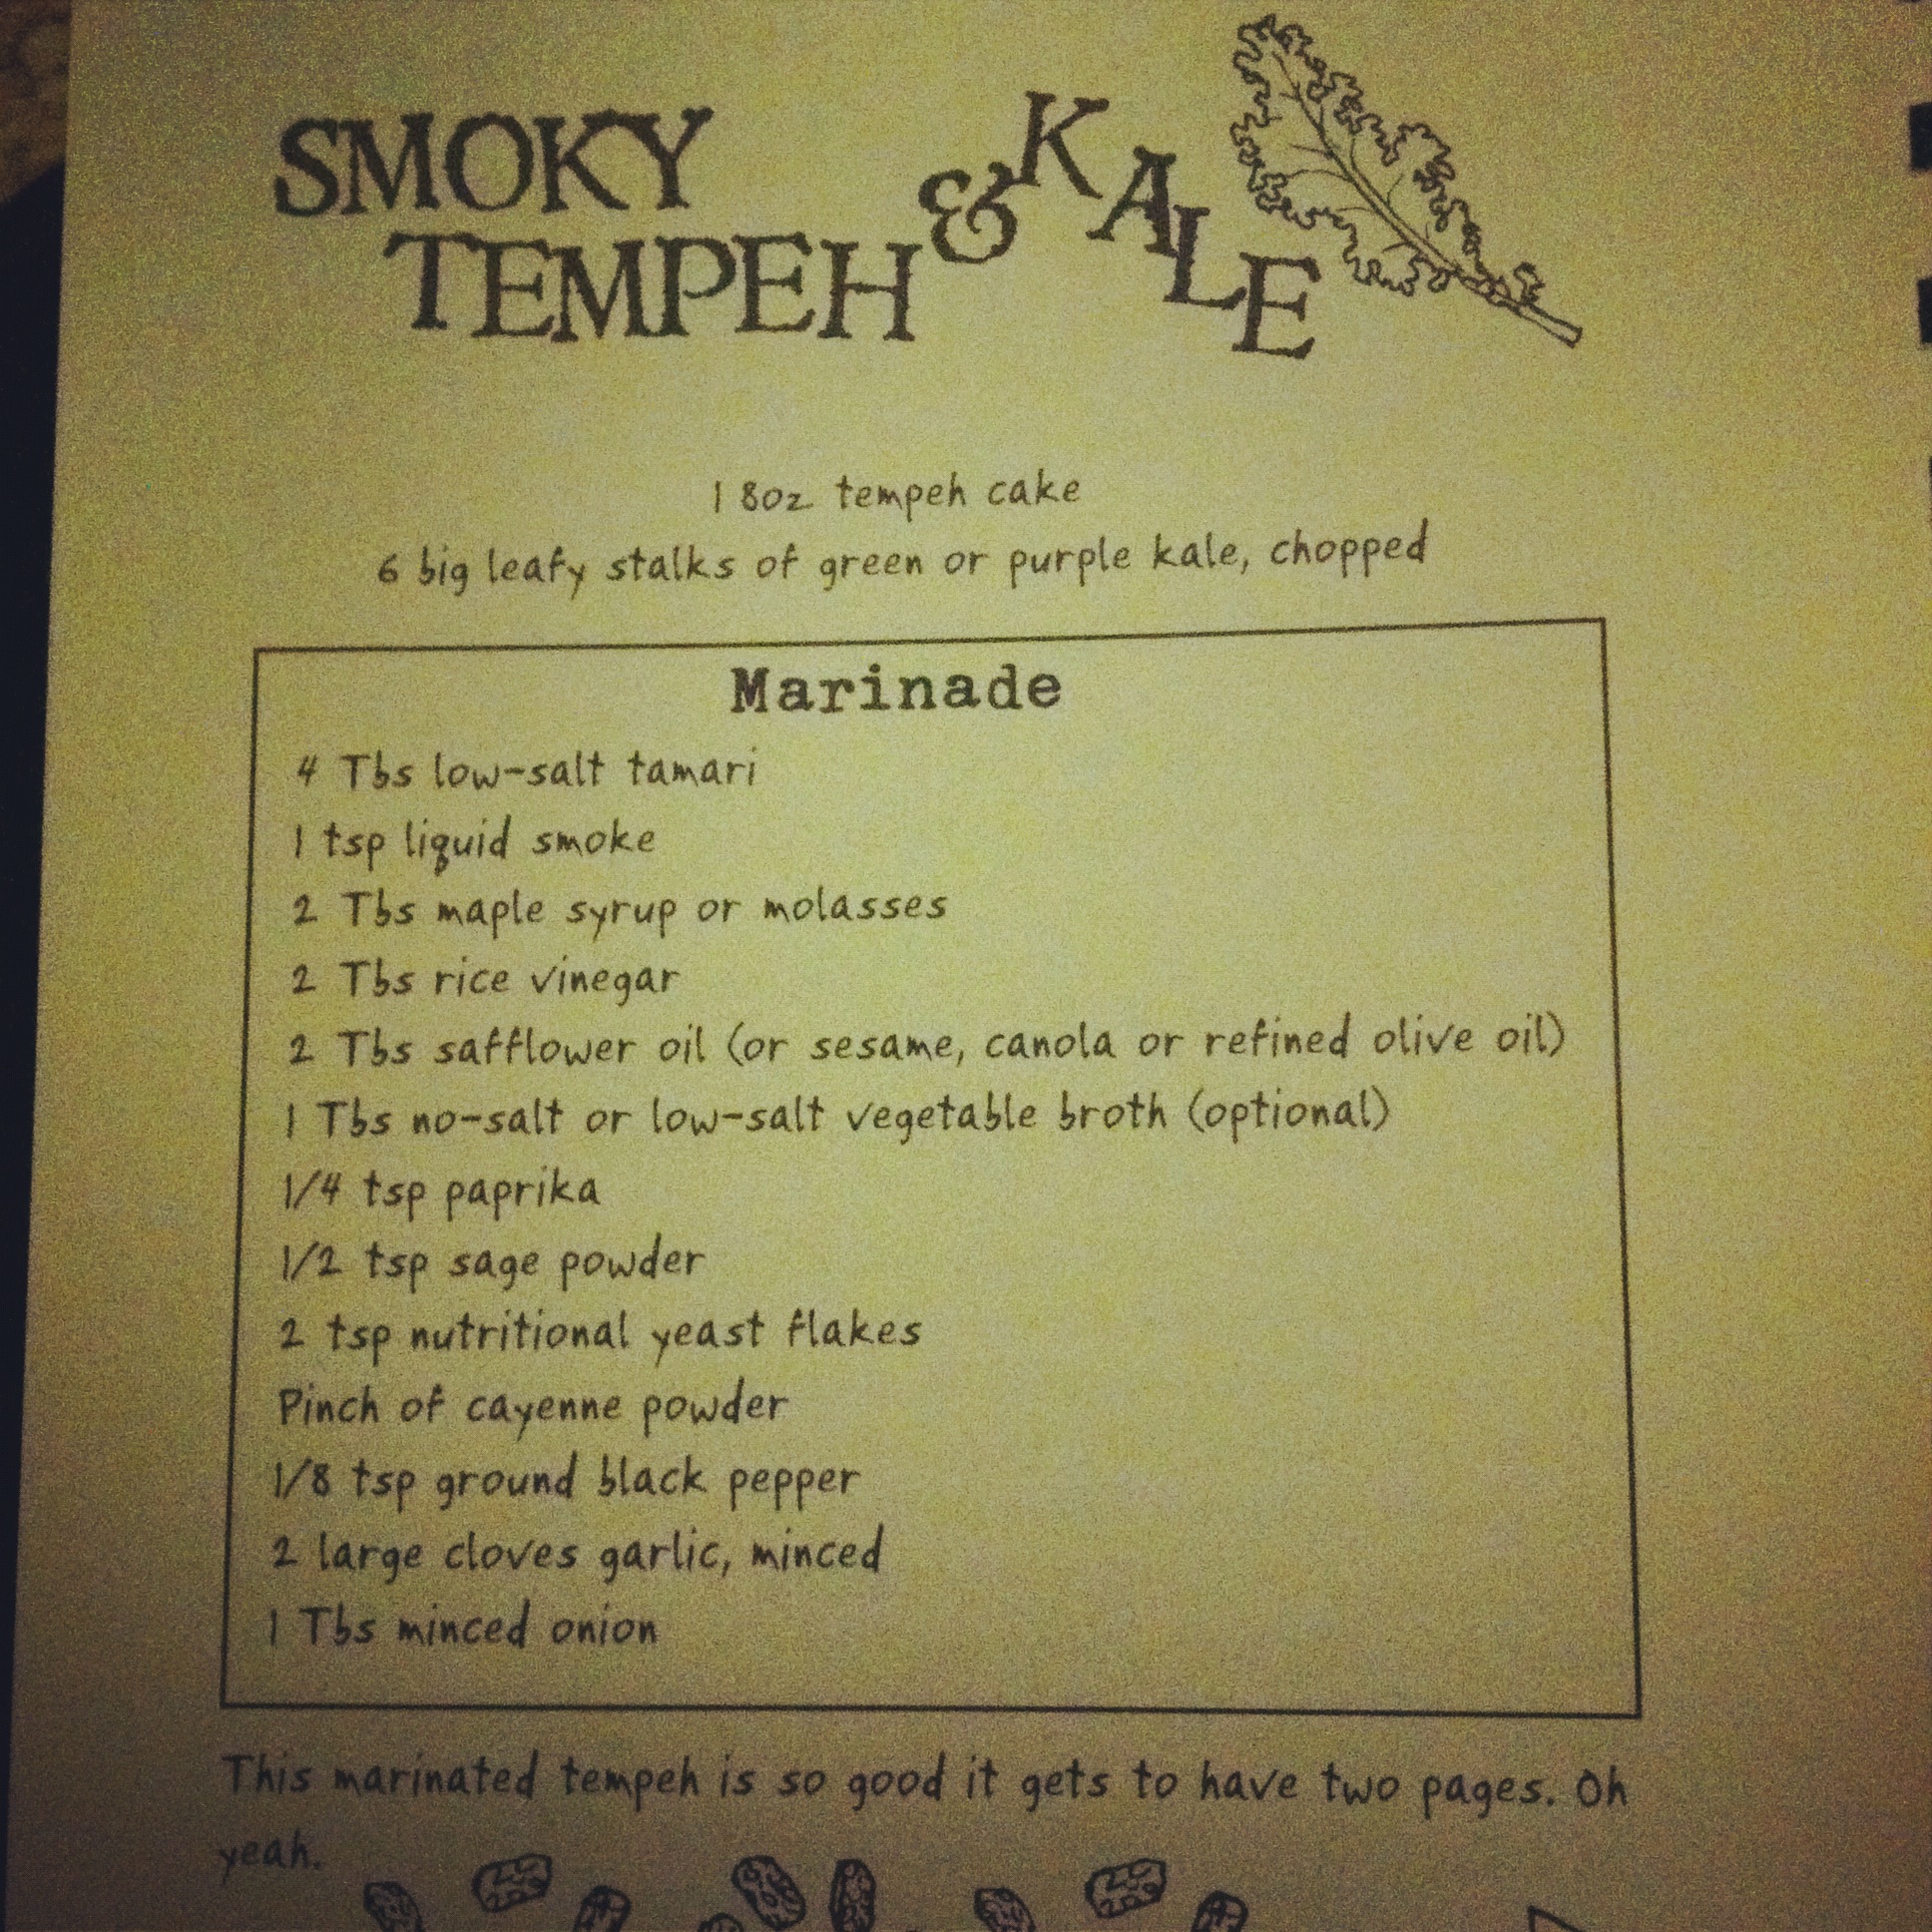 SMOKY
TEMPEH & KALE
1 8oz tempeh cake
6 big leafy stalks of green or purple kale, chopped
Marinade
4 Tbs low-salt tamari
1 tsp liquid smoke
2 Tbs maple syrup or molasses
2 Tbs rice vinegar
2 Tbs safflower oil (or sesame, canola or refined olive oil)
1 Tbs no-salt or low-salt vegetable broth (optional)
1/4 tsp paprika
1/2 tsp sage powder
2 tsp nutritional yeast flakes
Pinch of cayenne powder
1/8 tsp ground black pepper
2 large cloves garlic, minced
1 Tbs minced onion
This marinated tempeh is so good it gets to have two pages. Oh
yeah.